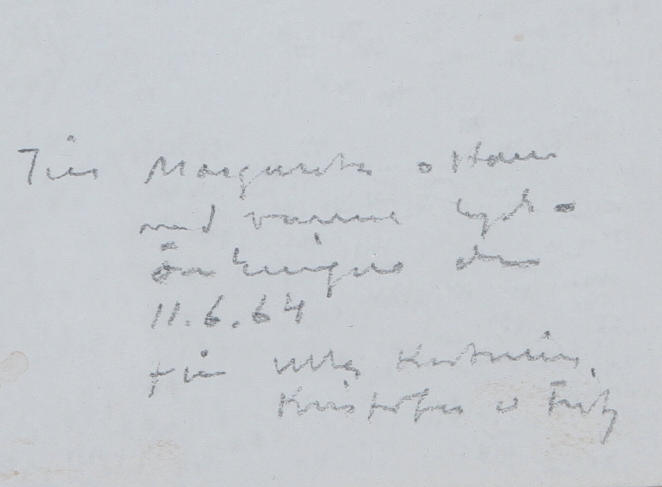 Till Margareta o Hans
med varma lyck-
önskningar den
11.6.64
från Ulla,
Kristofer o Fritz